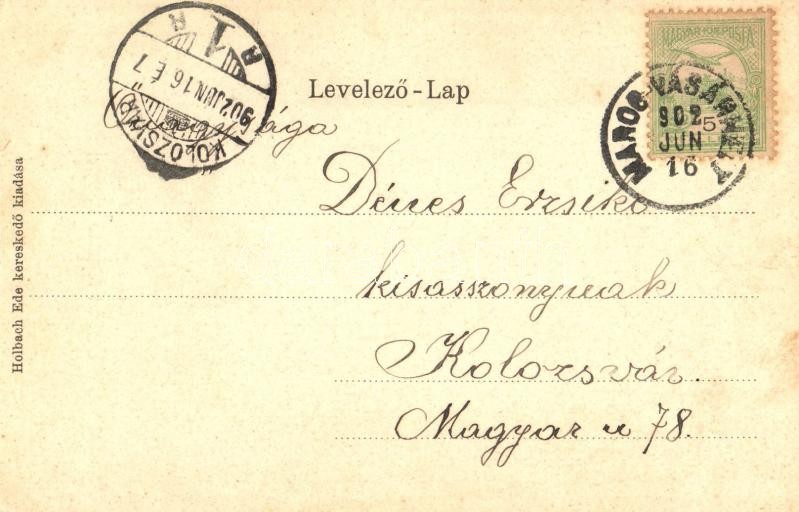 R
1
R
902 JUN 16 É 7
KOLOZSVÁR
Levelező-Lap
MAGY. KIR. POSTA
5
MAROS-VÁSÁRHELY
902
JUN
16
Dénes Erzsike
kisasszonynak
Kolozsvár.
Magyar u 78.
Holbach Ede kereskedő kiadása